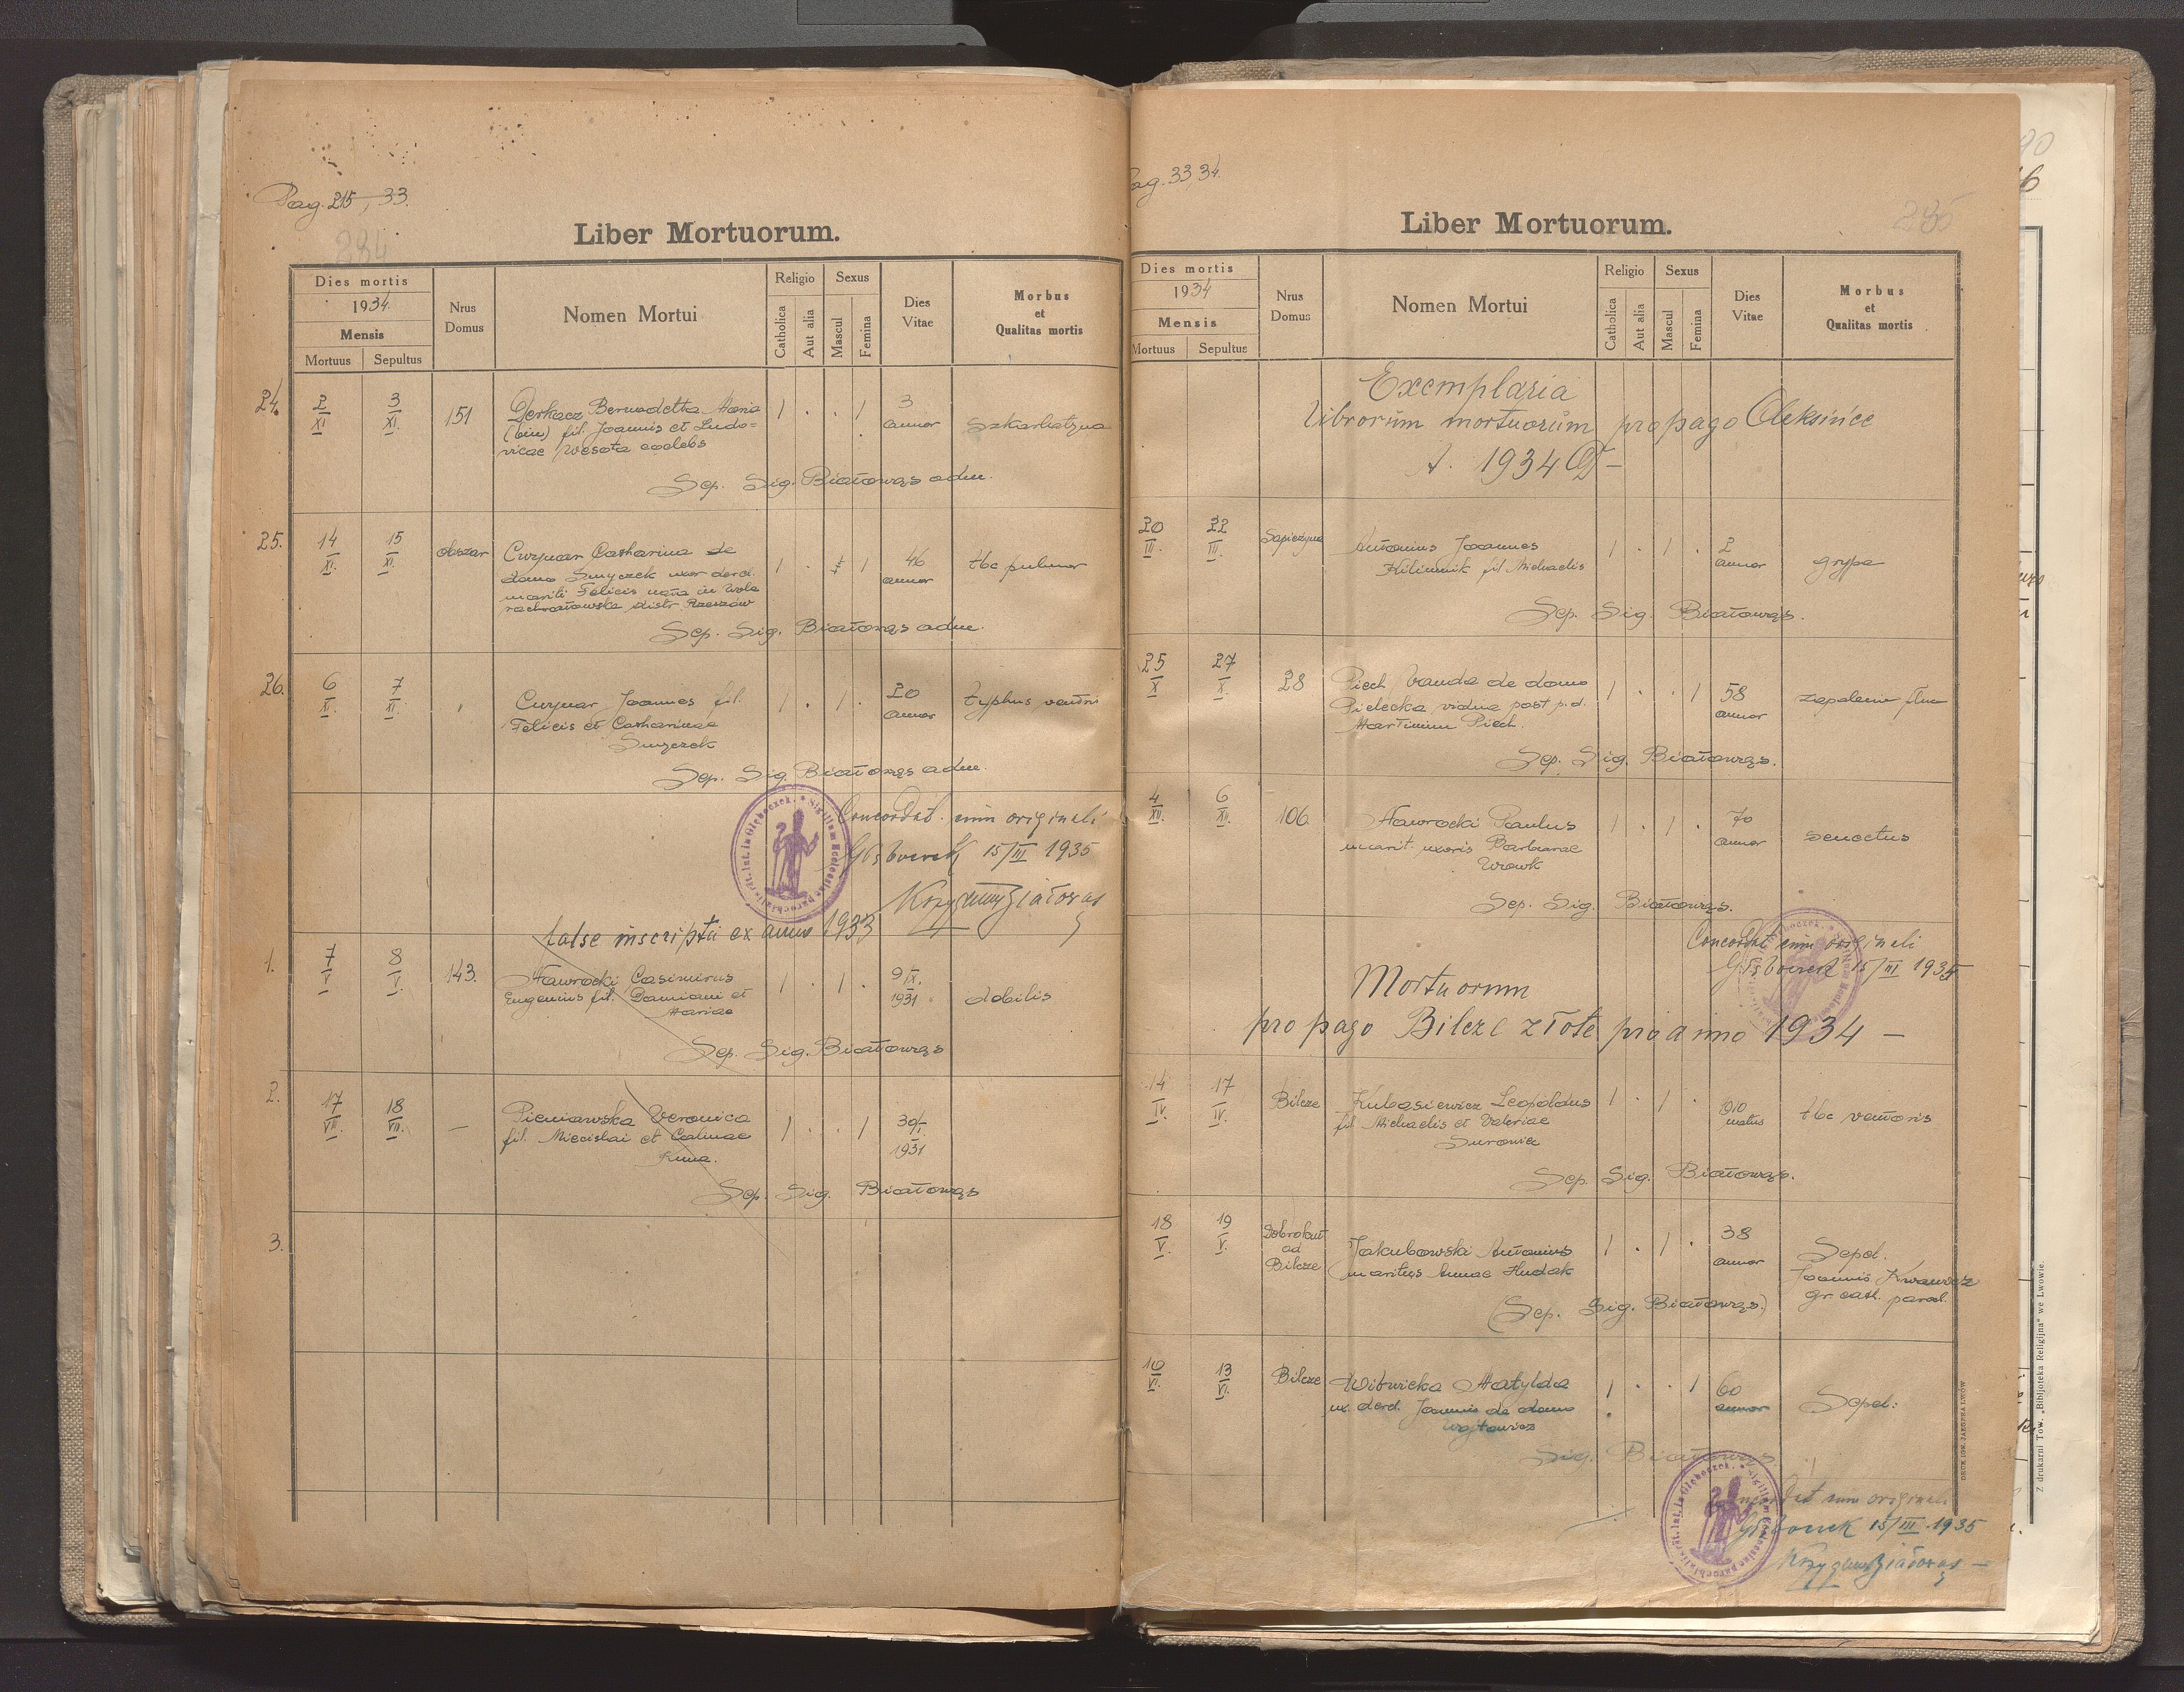 Pag. 215, 33.
234
Liber Mortuorum.
Dies mortis
1934
Mensis
Mortuus Sepultus
Nrus Domus
Nomen Mortui
Religio
Catholica
Aut alia
Sexus
Mascul
Femina
Dies Vitae
Morbus
et
Qualitas mortis
24. 2/XI 3/XI. 151 Derkacz Bernadetta Maria 1 . . 1 3 annor Szkarlatyna
(bin) fil. Joannis et Ludo=
vicae Wesoła coelebs
Sep. Sig. Białowąs adm.
25. 14/XI. 15/XI. obszar Curynar Catharina de 1 . 1 46 annor tbc pulmor
domo Smyczek uxor derel.
mariti Felicis nata in Wola
distr. Rzeszów
Sep. Sig. Białowąs adm.
26. 6/XI. 7/XI. Curynar Joannes fil. 1 . 1 . 20 annor typhus ventri
Felicis et Catharinae
Smyczek
Sep. Sig. Białowąs adm.
Concordat cum originali
Głęboczek 15/III 1935
Białowąs
false inscripta ex anno 1933
1. 7/V 8/V. 143. Nawrocki Casimirus 1 . 1 . 9/IX. 1931 debilis
Eugenius fil. Damiani et
Mariae
Sep. Sig. Białowąs
2. 17/VII. 18/VII. — Pieniawska Veronica 1 . . 1 30/I. 1931
fil. Miecislai et
Kuna.
Sep. Sig. Białowąs
3.
Pag. 33, 34.
235
Liber Mortuorum.
Dies mortis
1934
Mensis
Mortuus Sepultus
Nrus Domus
Nomen Mortui
Religio
Catholica
Aut alia
Sexus
Mascul
Femina
Dies Vitae
Morbus
et
Qualitas mortis
Exemplaria
librorum mortuorum pro pago Oleksińce
A. 1934 D-
20/III. 22/III. Sapieżyna Antonius Joannes 1 . 1 . 2 annor grypa
Kilimnik fil Michaelis
Sep. Sig. Białowąs.
25/X 27/X. 28 Piech Vanda de domo 1 . . 1 58 annor zapalenie płuc
Pielecka vidua post p.d.
Martinum Piech.
Sep. Sig. Białowąs.
4/XII. 6/XII. 106. Nawrocki Paulus 1 . 1 . 70 annor senectus
marit. uxoris Barbarae
Wowk
Sep. Sig. Białowąs.
Concordat cum originali
Głęboczek 15/III 1935
Mortuorum
pro pago Bilcze złote pro anno 1934 —
14/IV. 17/IV. Bilcze Kubasiewicz Leopoldus 1 . 1 . 1910 natus tbc
fil. Michaelis et Valeriae
Surowiec
Sep. Sig. Białowąs.
18/V. 19/V. ad Bilcze Jakubowski Antonius 1 . 1 . 38 annor Sepel.
maritus Annae Hudak
Joannis
gr. cath. paroch.
(Sep. Sig. Białowąs.)
10/VI. 13/VI. Bilcze Witwicka Matylda 1 . . 1 60 annor Sepel:
ux. derel. Joannis de domo
Wojtowicz
Sig. Białowąs.
Concordat cum originali
Głęboczek 15/III. 1935
Białowąs —
DRUK IGN. JAEGERA LWÓW
Z drukarni Tow. „Bibljoteka Religijna" we Lwowie.